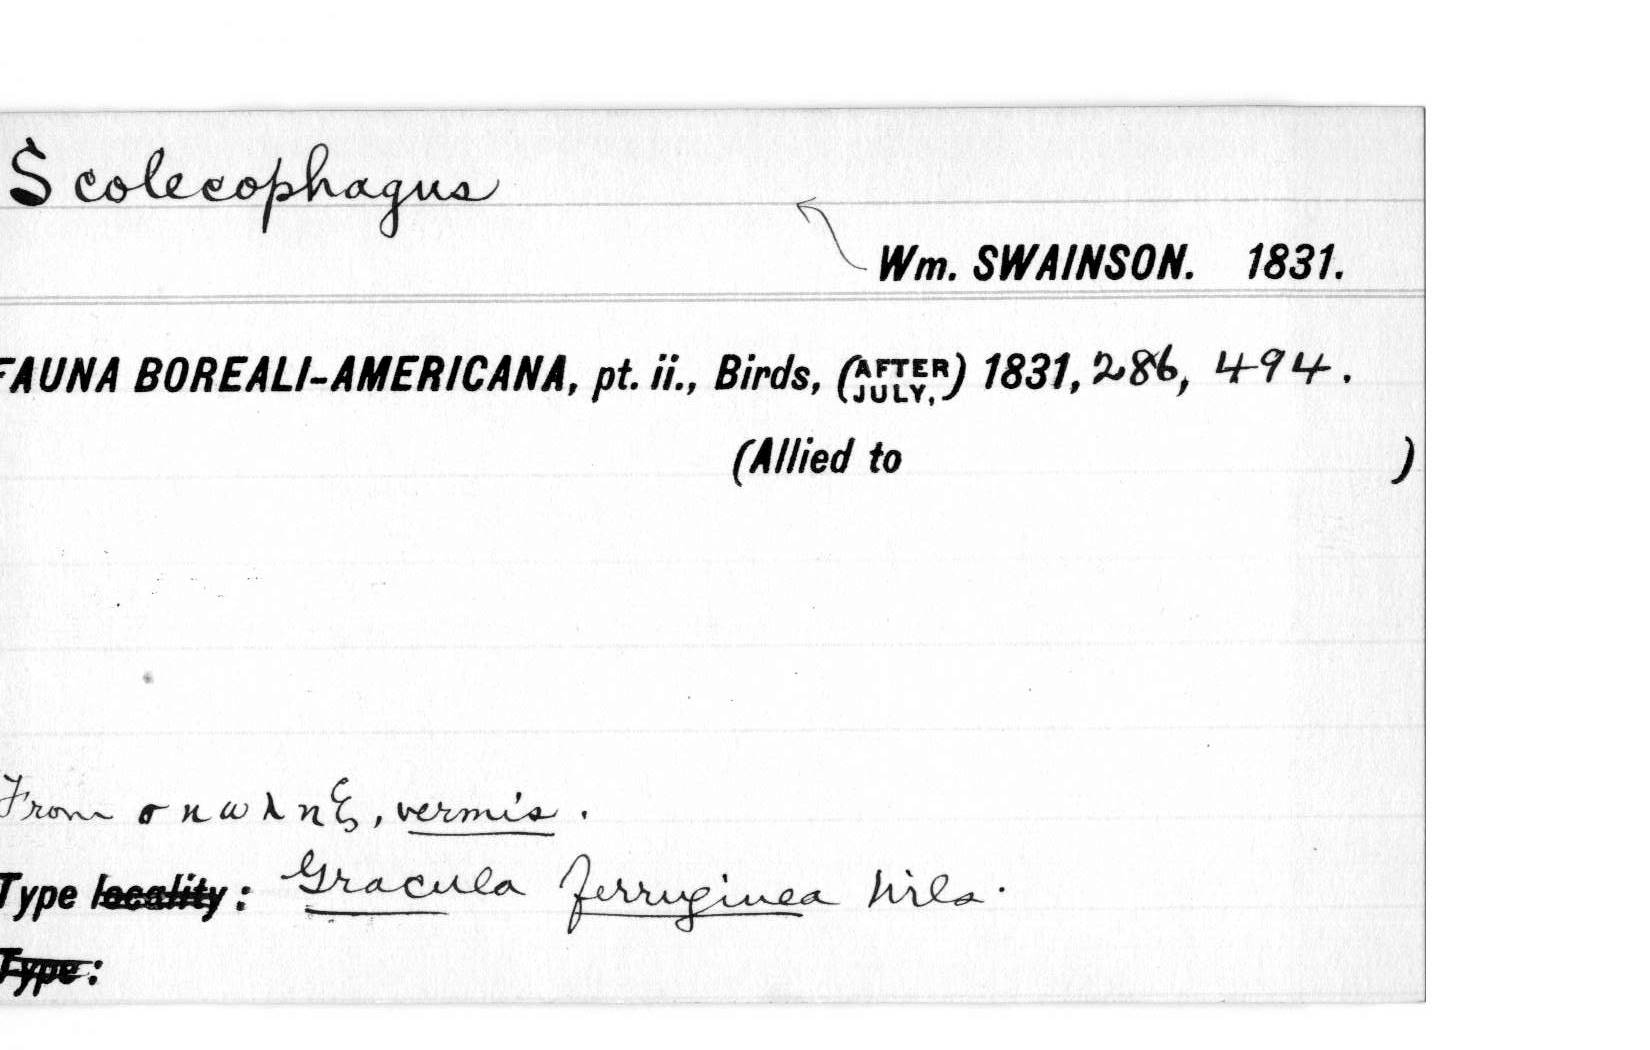 Scolecophagus
Wm. SWAINSON. 1831.
FAUNA BOREALI-AMERICANA, pt. ii., Birds, (AFTER JULY,) 1831, 286, 494.
(Allied to )
From σκωληξ, vermis.
Type locality: Gracula ferruginea Wils.
Type: